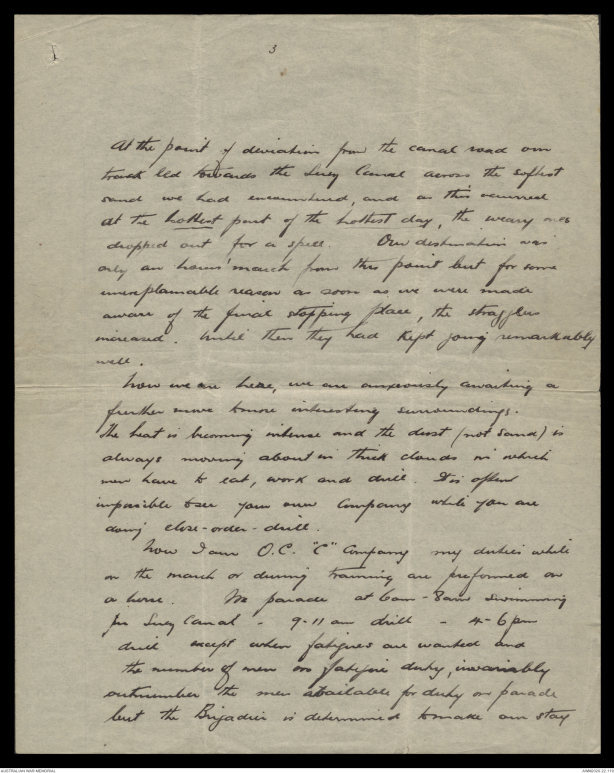 3
At the point of deviation from the canal road our
track led towards the Suez Canal across the softest
sand we had encountered, and as this occurred
at the hottest part of the hottest day, the weary ones
dropped out for a spell. Our destination was
only an hours' march from this point but for some
unexplainable reason as soon as we were made
aware of the final stopping place, the stragglers
increased. Until then they had kept going remarkably
well.
Now we are here, we are anxiously awaiting a
further move to more interesting surroundings.
The heat is becoming intense and the dust (not sand) is
always moving about in thick clouds in which
men have to eat, work and drill. It is often
impossible to see your own Company while you are
doing close-order-drill.
Now I am O.C. "C" Company my duties while
on the march or during training are preformed on
a horse. We parade at 6am - 8am swimming
in Suez Canal - 9-11 am drill - 4-6pm
drill except when fatigues are wanted and
the number of men on fatigue duty, invariably
outnumber the men available for duty on parade
but the Brigadier is determined to make our stay
AUSTRALIAN WAR MEMORIAL